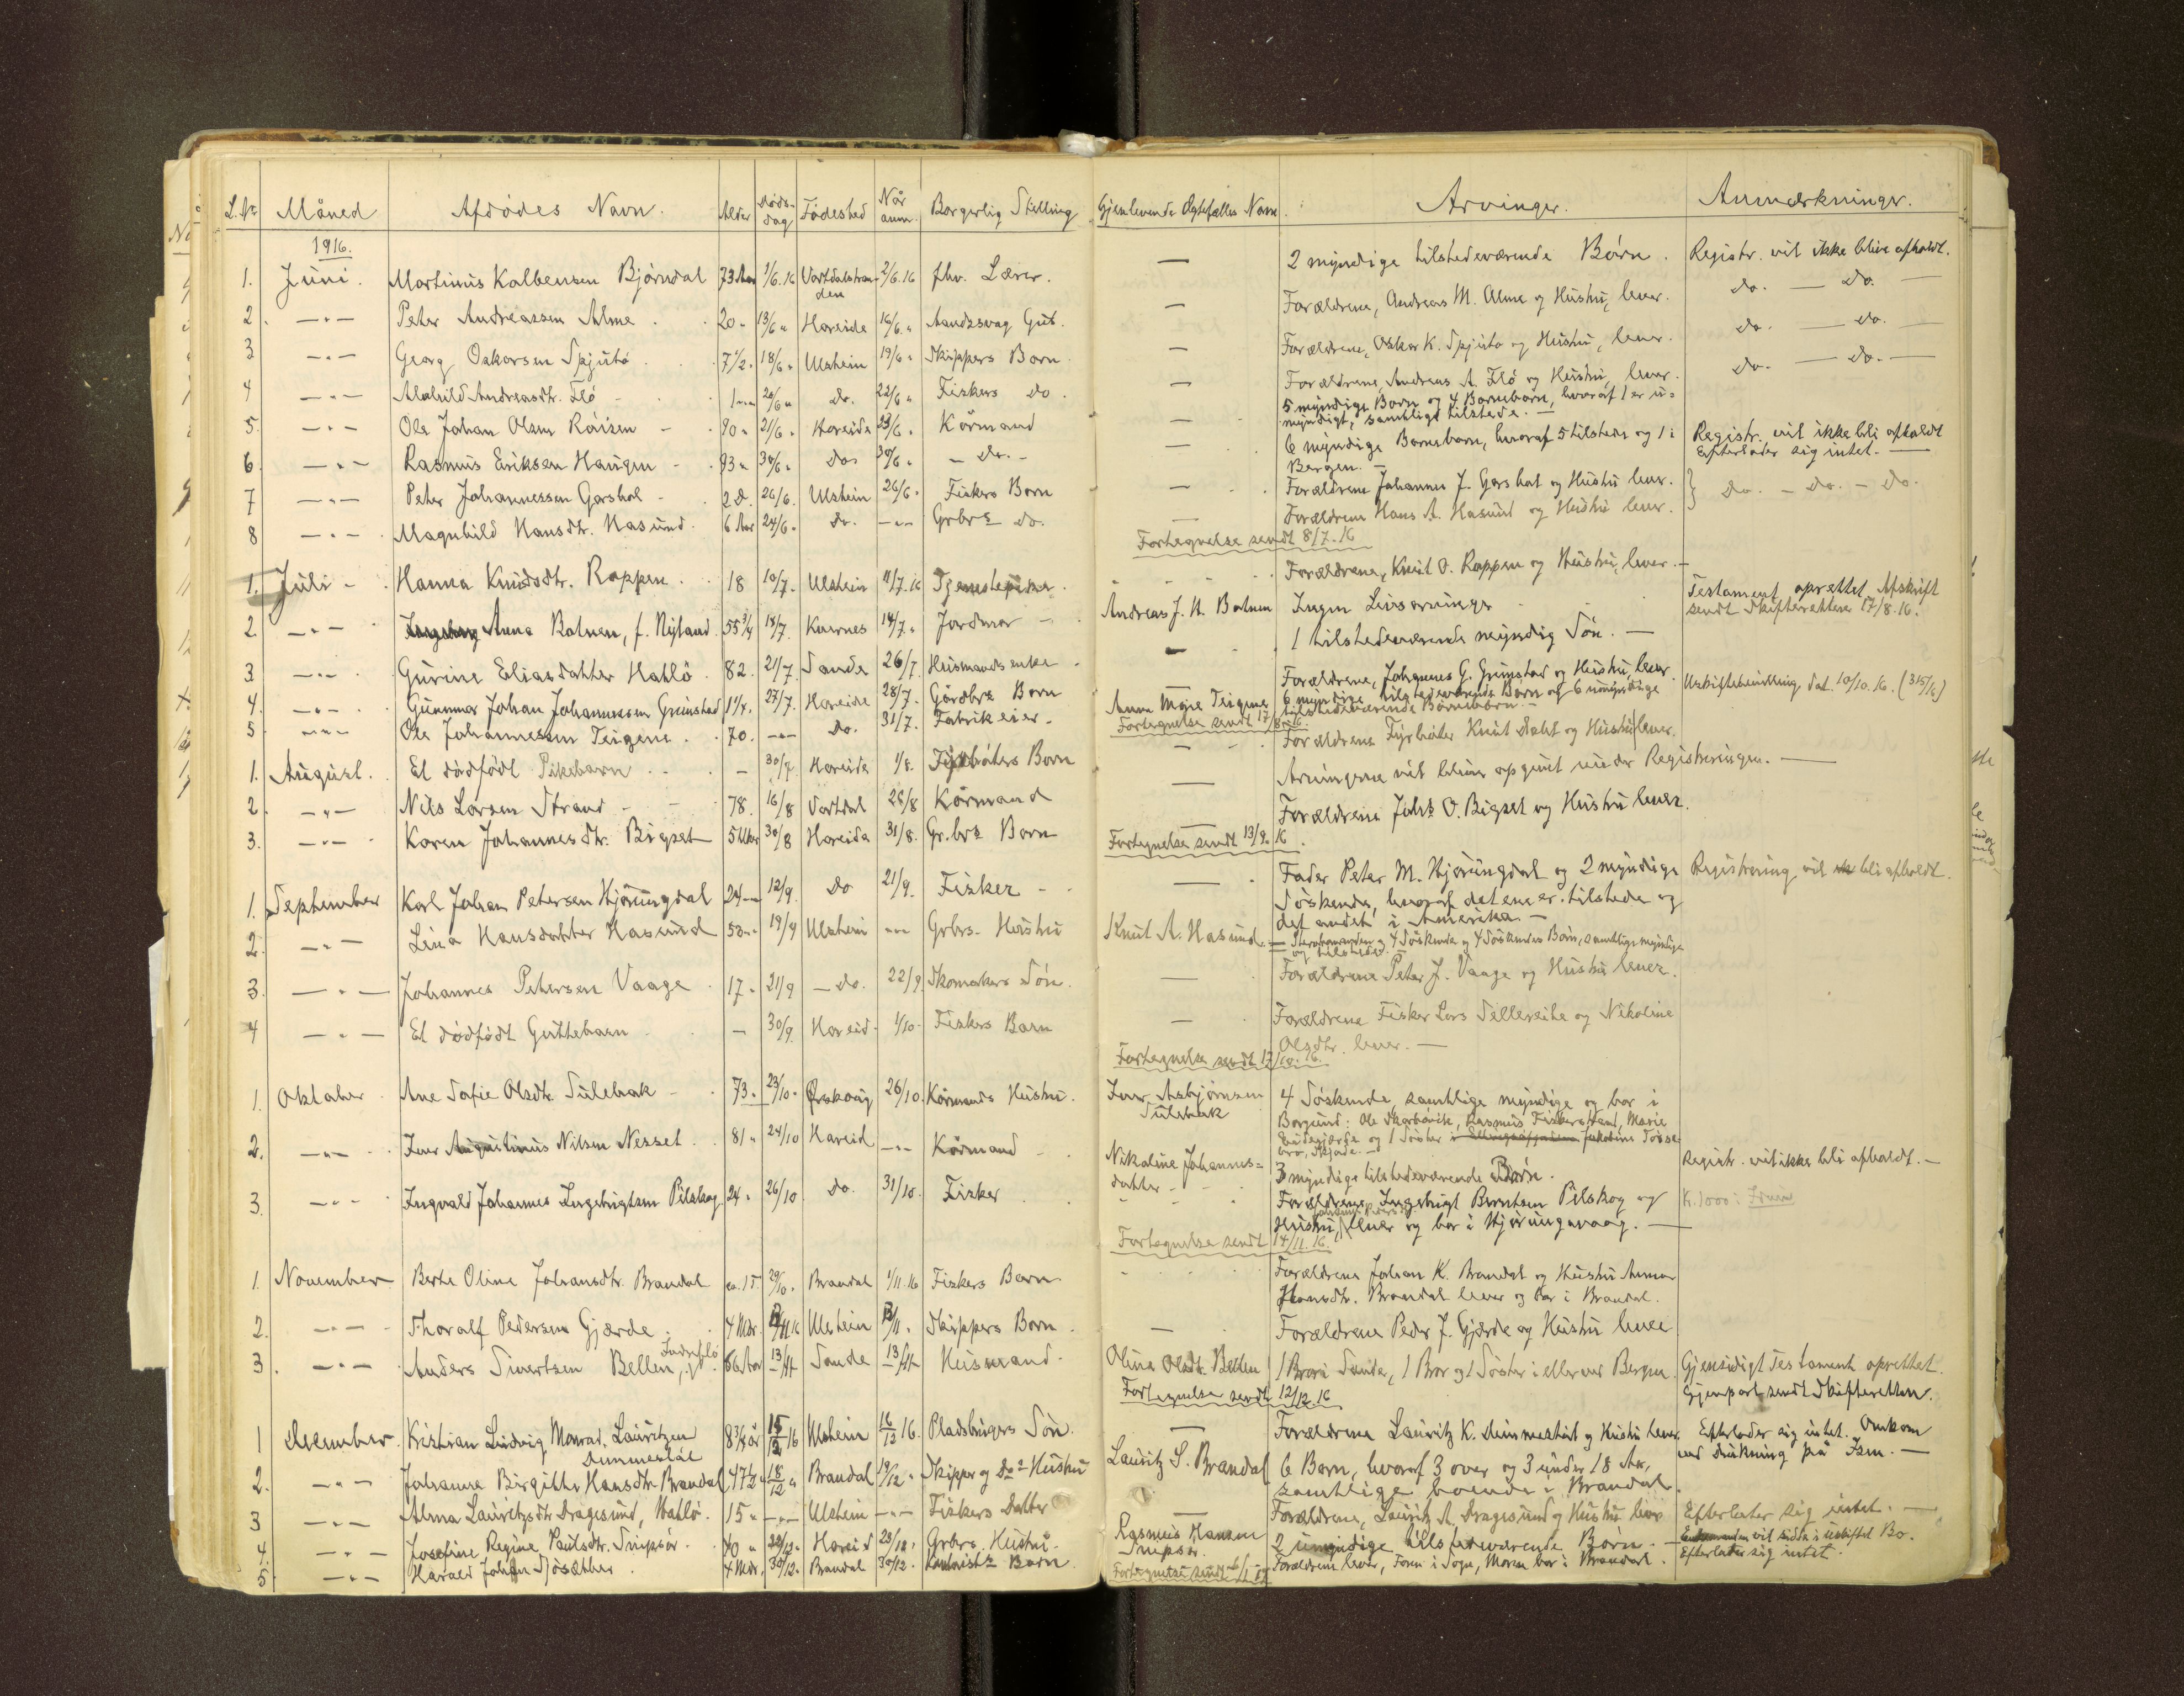 L.Nr. Måned Afdødes Navn. Alder Døds-dag Fødested Når anm. Borgerlig Stilling Gjenlevende Ægtefælles Navn. Arvinger. Anmærkninger.
1916.
1. Juni. Martinus Kolbensen Bjørndal 73 Aar 1/6.16 Vartdalstran-den 2/6.16 fhv. Lærer. — 2 myndige tilstedeværende Børn. Registr. vil ikke blive afholdt.
2. —"— Peter Andreassen Alme 20 " 13/6 " Hareide 16/6 " Aandssvag Gut. — Forældrene, Andreas M. Alme og Hustru, lever. do. — do. —
3 —"— Georg Oskarsen Spjutø 7 1/2 " 18/6 " Ulstein 19/6 " Skippers Barn — Forældrene, Oskar K. Spjutø og Hustru, lever. do. — do. —
4 —"— Andreasdtr. Flø 1 " 20/6 " do. 22/6 " Fiskers do. — Forældrene, Andreas A. Flø og Hustru, lever. do. — do. —
5. —"— Ole Johan Olsen Röisen 90 " 21/6 " Hareide 23/6 " Kårmand — 5 myndige Børn og 4 Barnebørn, hvoraf 1 er u=
myndigt, samtlige tilstede. —
6. —"— Rasmus Eriksen Haugen 93 " 30/6 " do. 30/6 " — do. — — 6 myndige Barnebørn, hvoraf 5 tilstede og 1 i Registr. vil ikke bli afholdt
Bergen. — Efterlader sig intet. —
7 —"— Peter Johannessen Garshol 2 D. 26/6. Ulstein 26/6 " Fiskers Barn — Forældrene Johannes J. Garshol og Hustru lever. } do. — do. — do.
8 —"— Magnhild Hansdtr. Hasund 6 Aar 24/6 " do. —"— Grbrs do. — Forældrene Hans A. Hasund og Hustru lever.
Fortegnelse sendt 8/7.16
1. Juli Hanna Knudsdtr. Rappen 18 10/7. Ulstein 11/7.16 Tjenestepike. Forældrene, Knut O. Rappen og Hustru, lever. —
2. —"— Anna Botnen, f. Nyland 55 3/4 18/7. Kvernes 14/7 " Jordmor Andreas J. H. Botnen Ingen Livsarvinger Testament oprettet. Afskrift
sendt Skifteretten 17/8.16.
3 —"— Gurine Eliasdatter Hatlö 82. 21/7. Sande 26/7. Husmands enke — 1 tilstedeværende myndig Søn. —
4. —"— Gunnar Johan Johannessen Grimstad 1 1/4. 27/7. Hareide 28/7. Gårdbrs Barn — Forældrene, Johannes G. Grimstad og Hustru, lever.
5 —"— Ole Johannessen Teigene 70. —"— do. 31/7. Fabrikeier. Anna Marie Teigene 6 myndige tilstedeværende Børn og 6 umyndige Uskiftebevilling dat. 10/10.16. (315/16)
tilstedeværende Barnebørn. —
Fortegnelse sendt 17/8.16.
1. August. Et dødfødt Pikebarn — 30/7. Hareide 1/8. Fyrbøters Barn — Forældrene Fyrbøter Knut og Hustru lever.
2. —"— Nils Larsen Strand 78. 16/8 Vartdal 26/8 Kårmand — Arvingerne vil blive opgivet under Registreringen. —
3. —"— Karen Johannesdtr. Bigset 5 Uker 30/8 Hareide 31/8. Gr.brs Barn — Forældrene Johs O. Bigset og Hustru lever.
Fortegnelse sendt 13/9.16.
1. September Karl Johan Petersen Hjørungdal 24 " 12/9. do 21/9. Fisker — Fader Peter M. Hjørungdal og 2 myndige Registrering vil bli afholdt.
Søskende, hvoraf det ene er tilstede og
det andet i Amerika. —
2. —"— Lina Hansdatter Hasund 50 " 19/9 Ulstein —"— Grbrs. Hustru Knut A. Hasund. — 4 Søskende og 4 Søskendes Børn, samtlige myndige
og tilstede. —
3. —"— Johannes Petersen Vaage 17 " 21/9 — do. 22/9. Skomakers Søn. — Forældrene Peter J. Vaage og Hustru lever.
4 —"— Et dødfødt Guttebarn — 30/9. Hareid. 1/10. Fiskers Barn — Forældrene Fisker Lars og Nikoline
Olsdtr. lever. —
Fortegnelse sendt 17/10.16.
1. Oktober Ane Sofie Olsdtr. Sulebak 73 " 23/10 " Ørskoug 26/10. Kårmands Hustru. Iver Asbjørnsen Sulebak 4 Søskende, samtlige myndige og bor i
Borgund: Ole Skarbövik, Rasmus Fiskerstrand, Marie
og 1 Søster
2. —"— Iver Augustinus Nilsen Nesset 81 " 24/10 Hareid —"— Kårmand Nikoline Johannes=datter 3 myndige tilstedeværende Børn. Registr. vil ikke bli afholdt. —
3. —"— Ingvald Johannes Ingebrigtsen Pilskog 24 " 26/10 do. 31/10. Fisker Forældrene Ingebrigt Berntsen Pilskog og K. 1000 i
Hustru, lever og bor i Hjørungavaag. —
Fortegnelse sendt 14/11.16.
1. November Berte Oline Johansdtr. Brandal ca. 15. 29/10. Brandal 1/11.16 Fiskers Barn Forældrene Johan K. Brandal og Hustru Anna
Hansdtr. Brandal lever og bor i Brandal.
2. —"— Thoralf Pedersen Gjærde 4 Mdr. Ulstein Skippers Barn — Forældrene Peder J. Gjærde og Hustru lever
3. —"— Anders Sivertsen Bellen, Indreflø 86 Aar 13/11 Sande 13/11 Husmand. Olina Olsdtr. Bellen 1 Bror i Sande, 1 Bror og 1 Søster i eller ved Bergen. Gjensidigt Testament oprettet.
Gjenpart sendt Skifteretten.
Fortegnelse sendt 12/12.16
1 December. Kristian Ludvig Monrad Lauritzen Dimmestöl 8 3/4 år 15/12 16 Ulstein 16/12 16. Pladsbrugers Søn. — Forældrene Lauritz K. Dimmestöl og Hustru lever. Efterlader sig intet. Omkom
ved drukning på Isen. —
2. —"— Johanne Birgitte Hansdtr. Brandal 47 1/2 18/12 " Brandal 19/12 " Skipper og Hustru Lauritz S. Brandal 6 Børn, hvoraf 3 over og 3 under 18 Aar,
samtlige boende i Brandal.
3 —"— Alma Lauritzdtr. Dragesund, Hatlö. 15 " —"— Ulstein —"— Fiskers Datter Forældrene, Lauritz A. Dragesund og Hustru lever Efterlater sig intet. —
4 —"— Josefine Regine Paulsdtr. Snipsör. 40 " 22/12 " Hareid 23/12 " Grbrs. Hustru. Rasmus Hansen Snipsör. 2 umyndige tilstedeværende Børn. — vil sidde i uskiftet Bo.
5. —"— Harald Johan Sjösæther 4 Mdr. 30/12. Brandal 30/12. Barn. Forældrene lever, Faren i Sogn, Moren bor i Brandal. Efterlater sig intet.
Fortegnelse sendt